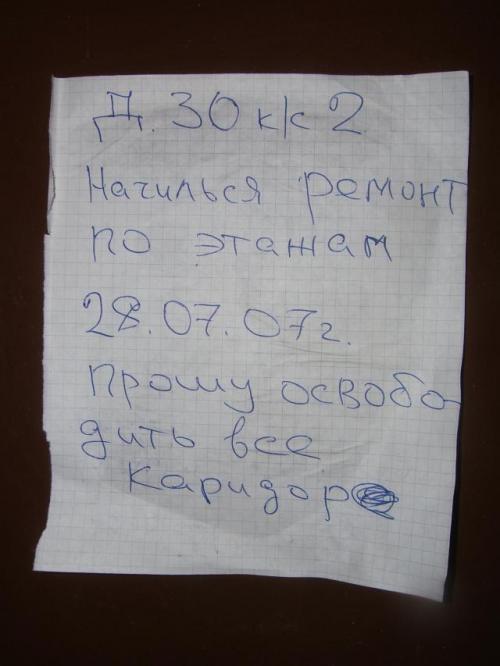 Д. 30 к/с 2
Начилься ремонт
по этажам
28.07.07г.
Прошу освобо
дить все
каридор